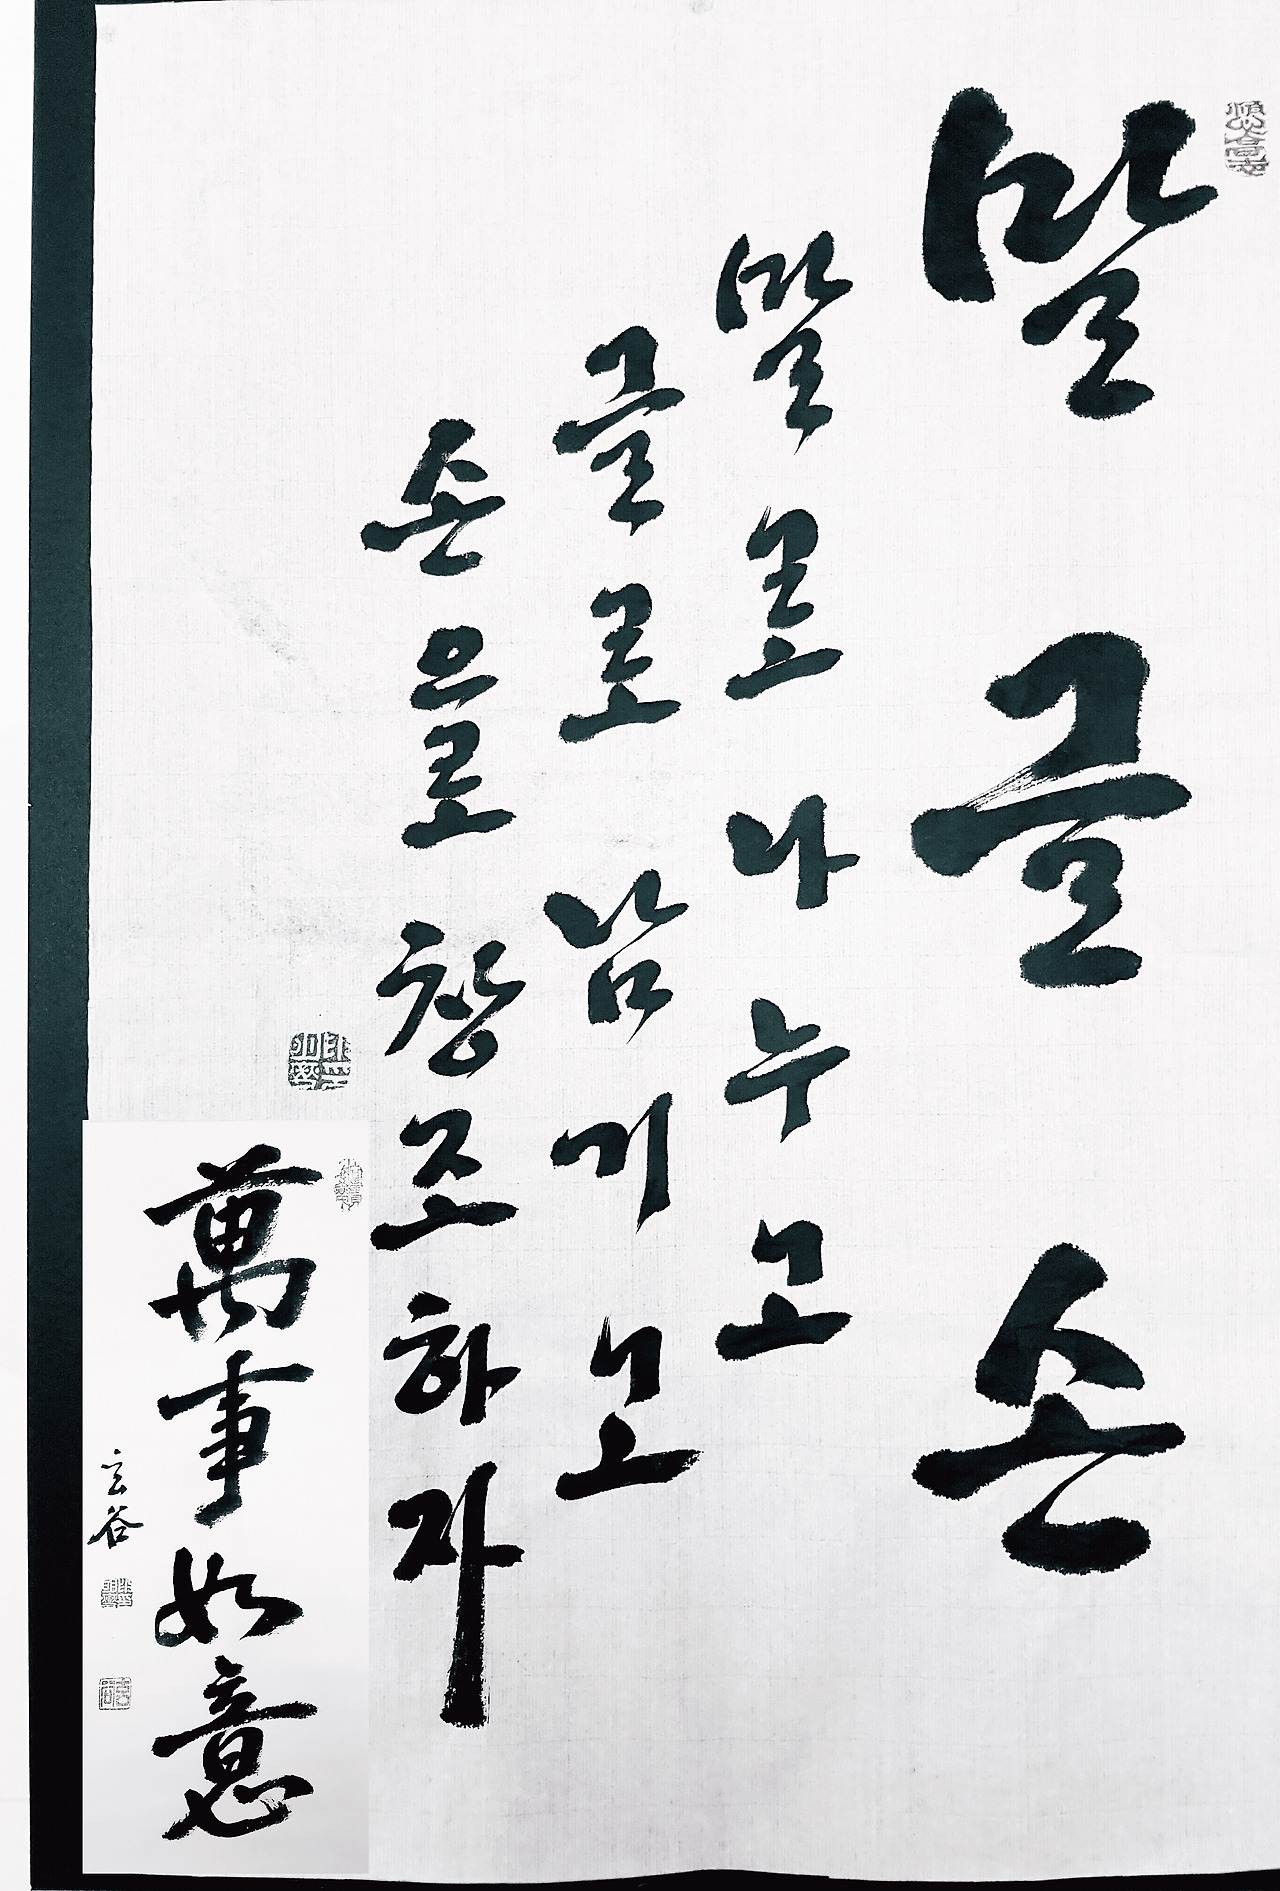 말 글 손
말로 나누고
글로 남기고
손으로 창조하자
萬事如意
玄谷